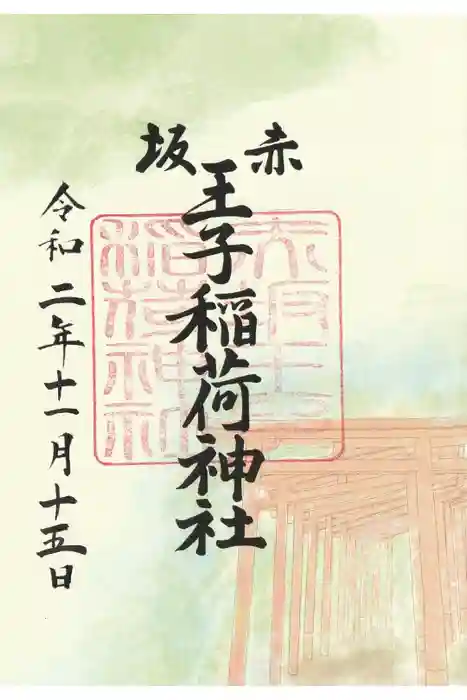 赤坂
王子稲荷神社
令和二年十一月十五日